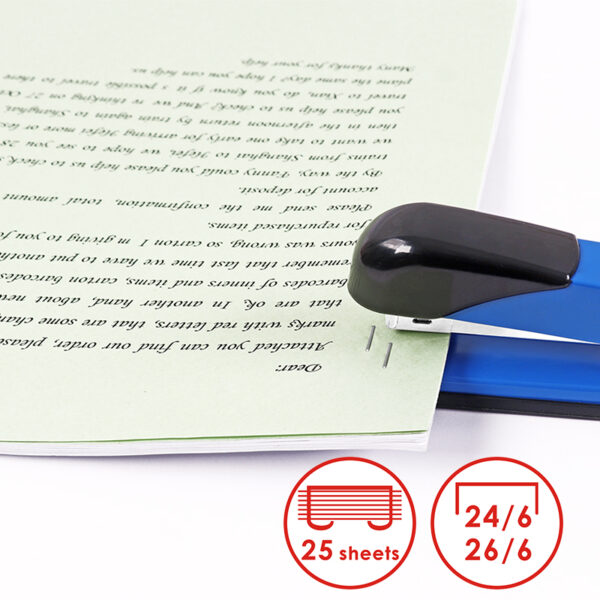 Dear:
Attached you can find our order, please
marks with red letters, that are some
that are ok. In another hand, about new
barcodes of inners and items, carton barcodes
remember that last time we have to put another
yours was wrong, so carton I m giving to you
for repurchased items.
Please send me the confirmation, total amount
account for deposit.
By the way, Fanny could you please help us to check
trains from Shanghai to Hefei, we hope to see you 28
we want to take one early for arriving Hefei more or less
then in the afternoon return by train again to Shanghai,
you please help us to check? And we re thinking on 27
to travel to Xian, do you know if it s possible to travel to there
plane the same day? I hope you can help us.
Many thanks for your help
25 sheets
24/6
26/6